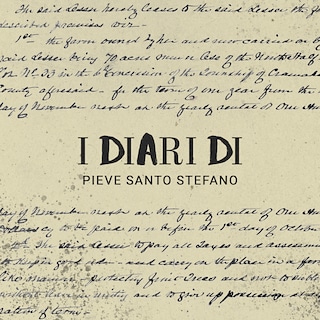 The said lessor hereby leases to the said Lessee the
described premises viz-
1st the farm owned by her and now carried on by
said Lessor being 70 acres more or less of the North Half of
Lot No. 33 in the 6th Concession of the Township of
County aforesaid - for the term of one year from the
day of November next at the yearly rental of One Hun
I DIARI DI
PIEVE SANTO STEFANO
day of November next at the yearly rental of One Hun
to be paid on or before the 1st day of October
The said Lessee to pay all Taxes and assessmen
super good order and carry on the place in a
like manner protecting fruit Trees and not to
without and to give up possession at
of term.